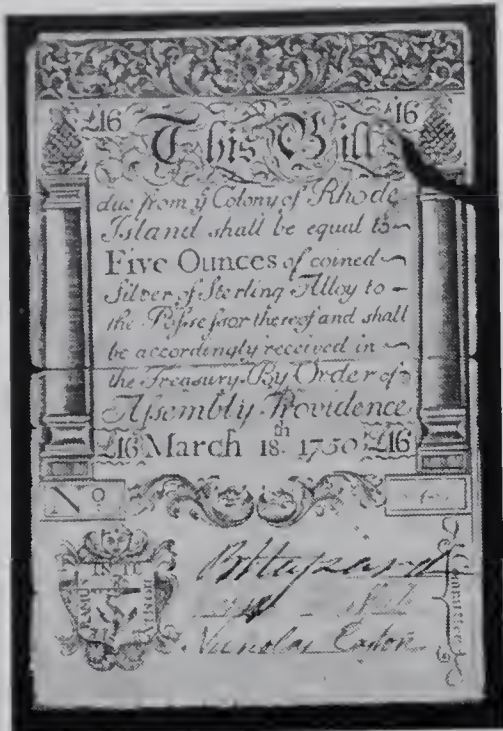 £16 £16
This Bill
due from ye Colony of Rhode
Island shall be equal to
Five Ounces of coined
Silver of Sterling Alloy to
the Possessor thereof and shall
be accordingly received in
the Treasury. By Order of
Assembly. Providence
£16 March 18th 1750 £16
No
B Hazard
Nicholas Easton
Committee